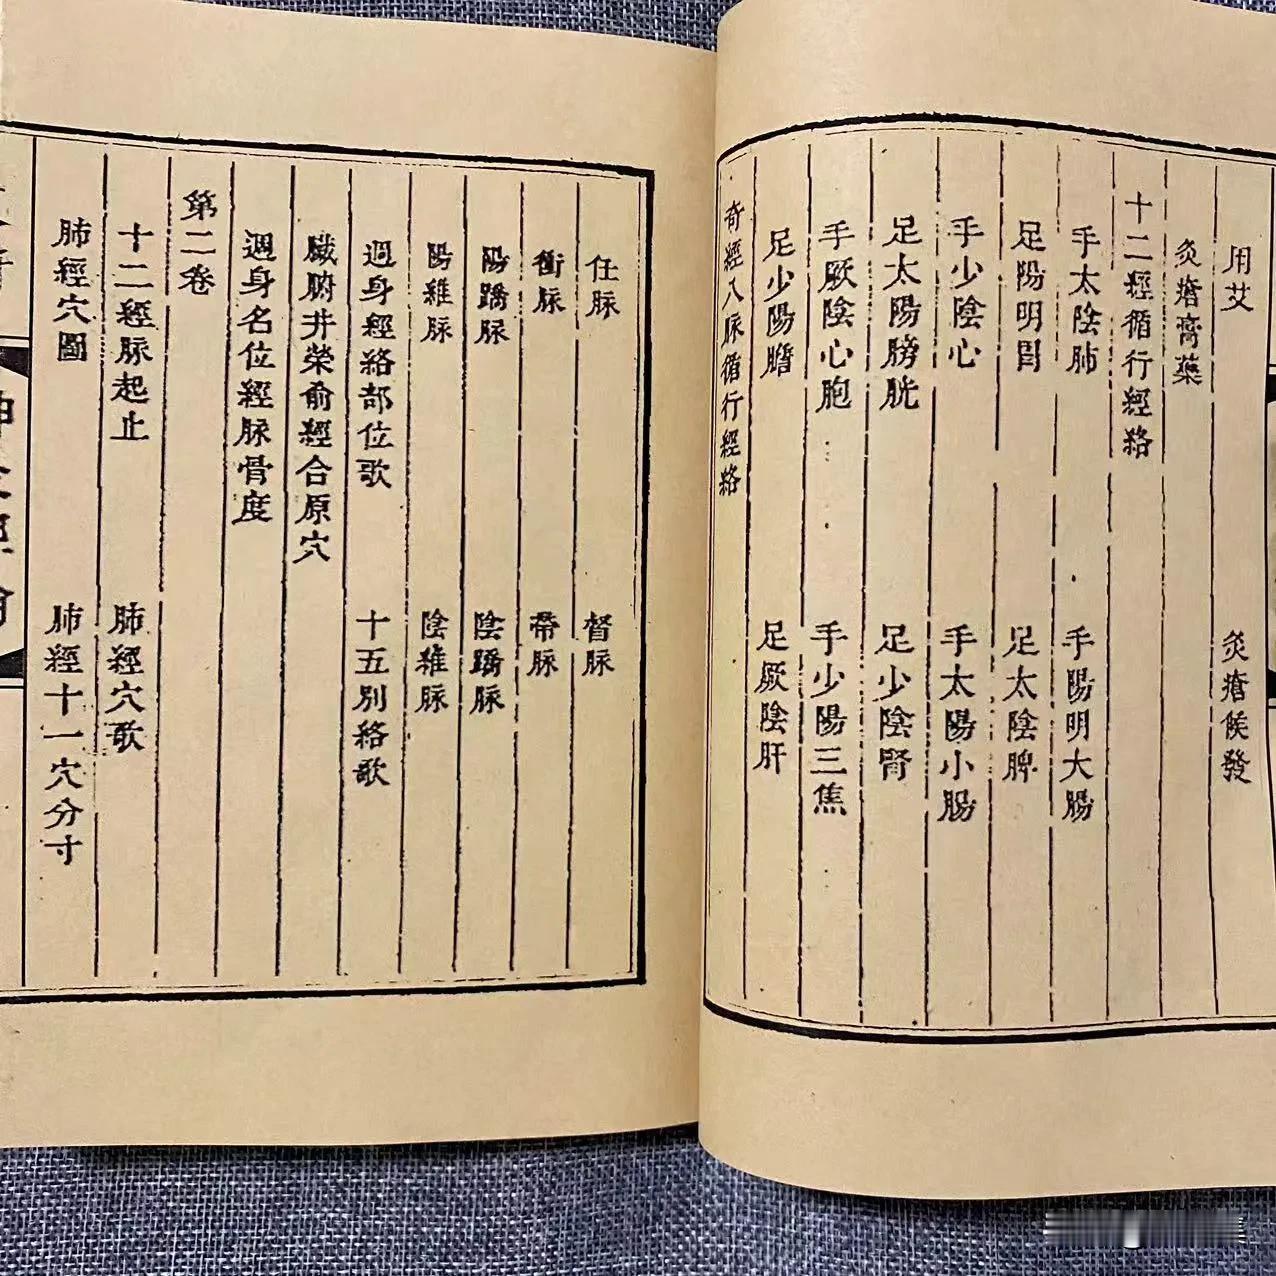 用艾　灸瘡候發
灸瘡膏藥
十二經循行經絡
手太陰肺　手陽明大腸
足陽明胃　足太陰脾
手少陰心　手太陽小腸
足太陽膀胱　足少陰腎
手厥陰心胞　手少陽三焦
足少陽膽　足厥陰肝
奇經八脉循行經絡
任脉　督脉
衝脉　帶脉
陽蹻脉　陰蹻脉
陽維脉　陰維脉
週身經絡部位歌　十五別絡歌
臟腑井榮俞經合原穴
週身名位經脉骨度
第二卷
十二經脉起止　肺經穴歌
肺經穴圖　肺經十一穴分寸